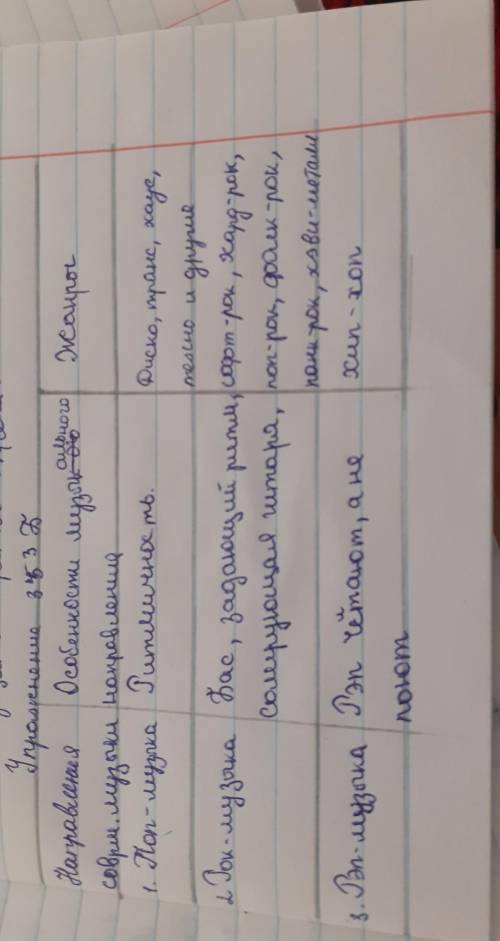 Упражнение 353 Б
Направления соврм. музыки
Особенности музыкального направления
Жанры
1. Поп-музыка
Ритмичность.
Диско, транс, хаус,
техно и другие
2. Рок-музыка
Бас, задающий ритм,
солирующая гитара,
софт-рок, хард-рок,
поп-рок, фолк-рок,
панк-рок, хэви-металл
3. Рэп-музыка
Рэп чётают, а не
поют
хип-хоп